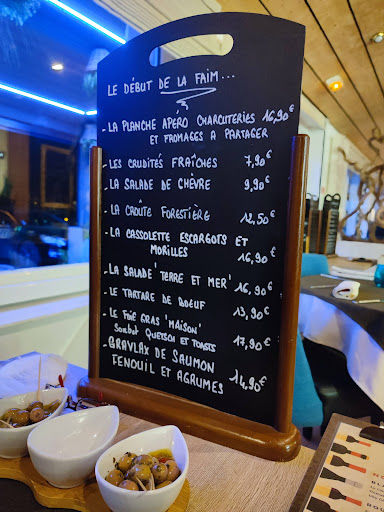 LE DÉBUT DE LA FAIM...
- LA PLANCHE APERO CHARCUTERIES 16,90€
ET FROMAGES A PARTAGER
- LES CRUDITÉS FRAÎCHES 7,90€
- LA SALADE DE CHÈVRE 9,90€
- LA CROÛTE FORESTIÈRE 12,50€
- LA CASSOLETTE ESCARGOTS ET
MORILLES 16,90€
- LA SALADE 'TERRE ET MER' 16,90€
- LE TARTARE DE BOEUF 13,90€
- LE FOIE GRAS 'MAISON'
Sorbet Quetsch et TOASTS 17,90€
- GRAVLAX DE SAUMON
FENOUIL ET AGRUMES 14,90€